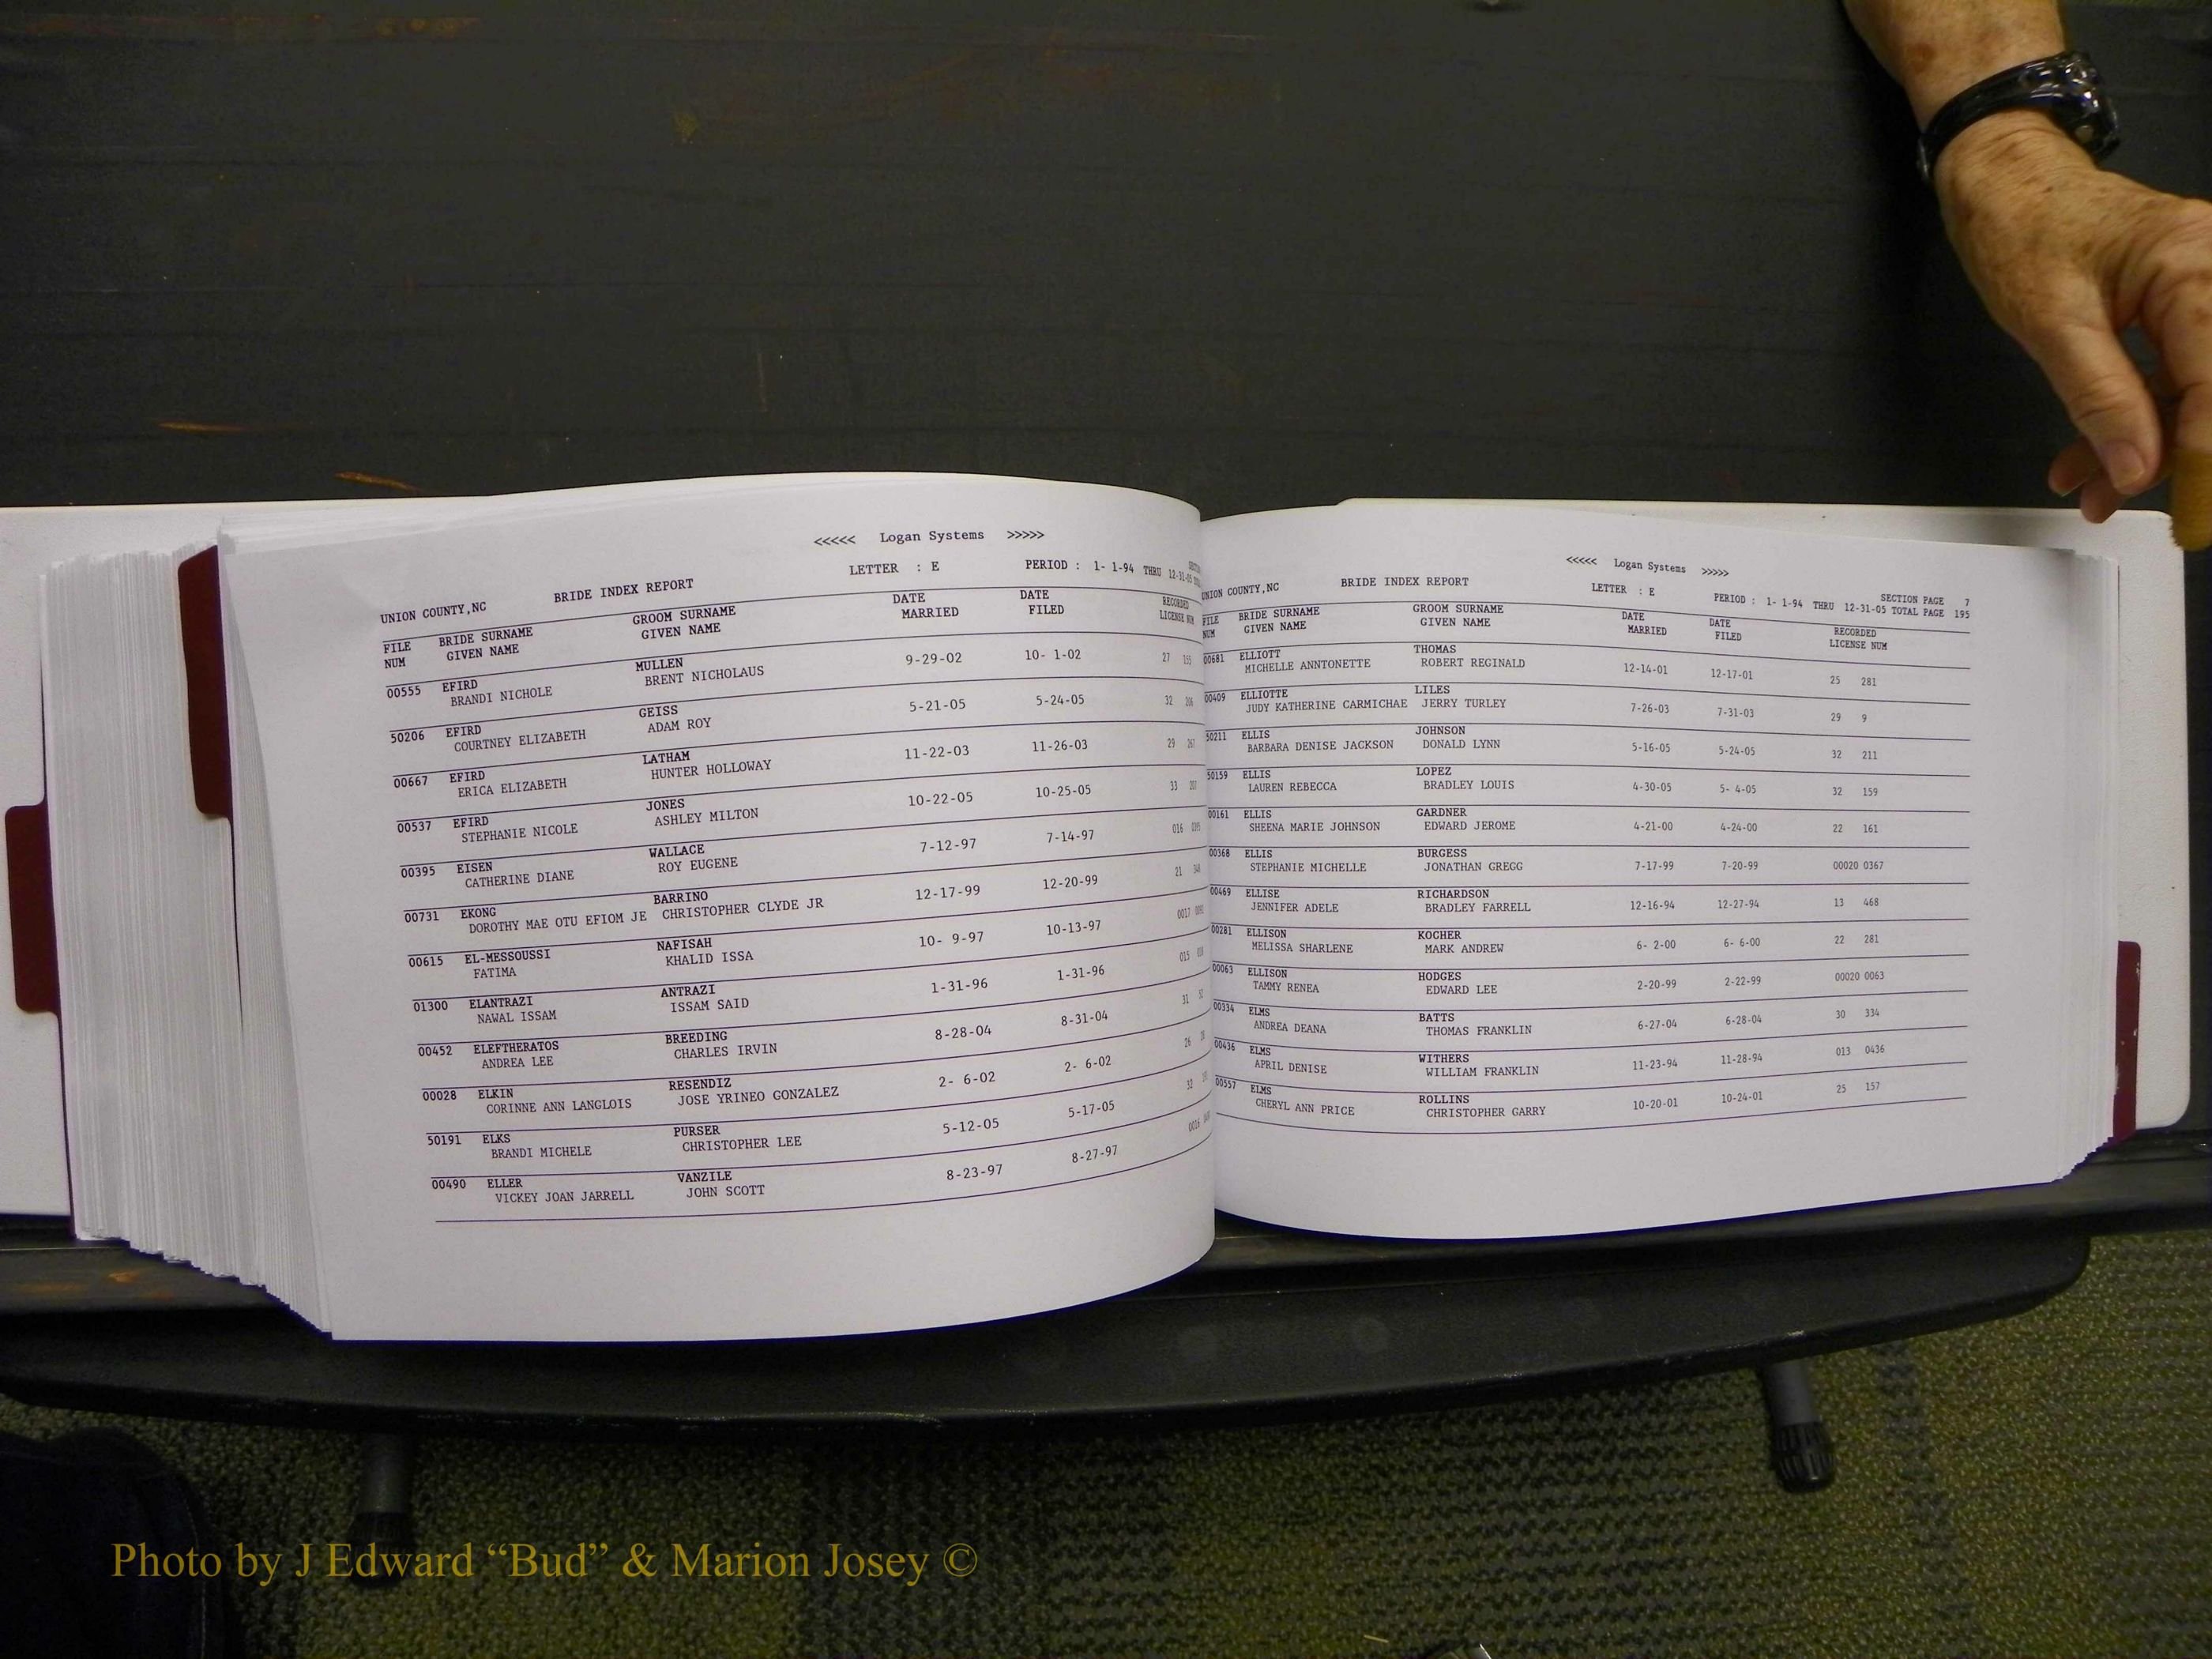 <<<<< Logan Systems >>>>>
UNION COUNTY,NC BRIDE INDEX REPORT LETTER : E PERIOD : 1- 1-94 THRU 12-31-05
FILE BRIDE SURNAME GROOM SURNAME DATE DATE RECORDED
NUM GIVEN NAME GIVEN NAME MARRIED FILED LICENSE NUM
00555 EFIRD MULLEN 9-29-02 10- 1-02 27
BRANDI NICHOLE BRENT NICHOLAUS
50206 EFIRD GEISS 5-21-05 5-24-05 32 206
COURTNEY ELIZABETH ADAM ROY
00667 EFIRD LATHAM 11-22-03 11-26-03 29 267
ERICA ELIZABETH HUNTER HOLLOWAY
00537 EFIRD JONES 10-22-05 10-25-05 33
STEPHANIE NICOLE ASHLEY MILTON
00395 EISEN WALLACE 7-12-97 7-14-97 016
CATHERINE DIANE ROY EUGENE
00731 EKONG BARRINO 12-17-99 12-20-99 21
DOROTHY MAE OTU EFIOM JE CHRISTOPHER CLYDE JR
00615 EL-MESSOUSSI NAFISAH 10- 9-97 10-13-97 0017
FATIMA KHALID ISSA
01300 ELANTRAZI ANTRAZI 1-31-96 1-31-96 015
NAWAL ISSAM ISSAM SAID
00452 ELEFTHERATOS BREEDING 8-28-04 8-31-04 31
ANDREA LEE CHARLES IRVIN
00028 ELKIN RESENDIZ 2- 6-02 2- 6-02 26
CORINNE ANN LANGLOIS JOSE YRINEO GONZALEZ
50191 ELKS PURSER 5-12-05 5-17-05 32
BRANDI MICHELE CHRISTOPHER LEE
00490 ELLER VANZILE 8-23-97 8-27-97 0016
VICKEY JOAN JARRELL JOHN SCOTT
<<<<< Logan Systems >>>>>
UNION COUNTY,NC BRIDE INDEX REPORT LETTER : E PERIOD : 1- 1-94 THRU 12-31-05 SECTION PAGE 7
TOTAL PAGE 195
FILE BRIDE SURNAME GROOM SURNAME DATE DATE RECORDED
NUM GIVEN NAME GIVEN NAME MARRIED FILED LICENSE NUM
00681 ELLIOTT THOMAS 12-14-01 12-17-01 25 281
MICHELLE ANNTONETTE ROBERT REGINALD
00409 ELLIOTTE LILES 7-26-03 7-31-03 29 9
JUDY KATHERINE CARMICHAE JERRY TURLEY
50211 ELLIS JOHNSON 5-16-05 5-24-05 32 211
BARBARA DENISE JACKSON DONALD LYNN
50159 ELLIS LOPEZ 4-30-05 5- 4-05 32 159
LAUREN REBECCA BRADLEY LOUIS
00161 ELLIS GARDNER 4-21-00 4-24-00 22 161
SHEENA MARIE JOHNSON EDWARD JEROME
00368 ELLIS BURGESS 7-17-99 7-20-99 00020 0367
STEPHANIE MICHELLE JONATHAN GREGG
00469 ELLISE RICHARDSON 12-16-94 12-27-94 13 468
JENNIFER ADELE BRADLEY FARRELL
00281 ELLISON KOCHER 6- 2-00 6- 6-00 22 281
MELISSA SHARLENE MARK ANDREW
00063 ELLISON HODGES 2-20-99 2-22-99 00020 0063
TAMMY RENEA EDWARD LEE
00334 ELMS BATTS 6-27-04 6-28-04 30 334
ANDREA DEANA THOMAS FRANKLIN
00436 ELMS WITHERS 11-23-94 11-28-94 013 0436
APRIL DENISE WILLIAM FRANKLIN
00557 ELMS ROLLINS 10-20-01 10-24-01 25 157
CHERYL ANN PRICE CHRISTOPHER GARRY
Photo by J Edward “Bud” & Marion Josey ©